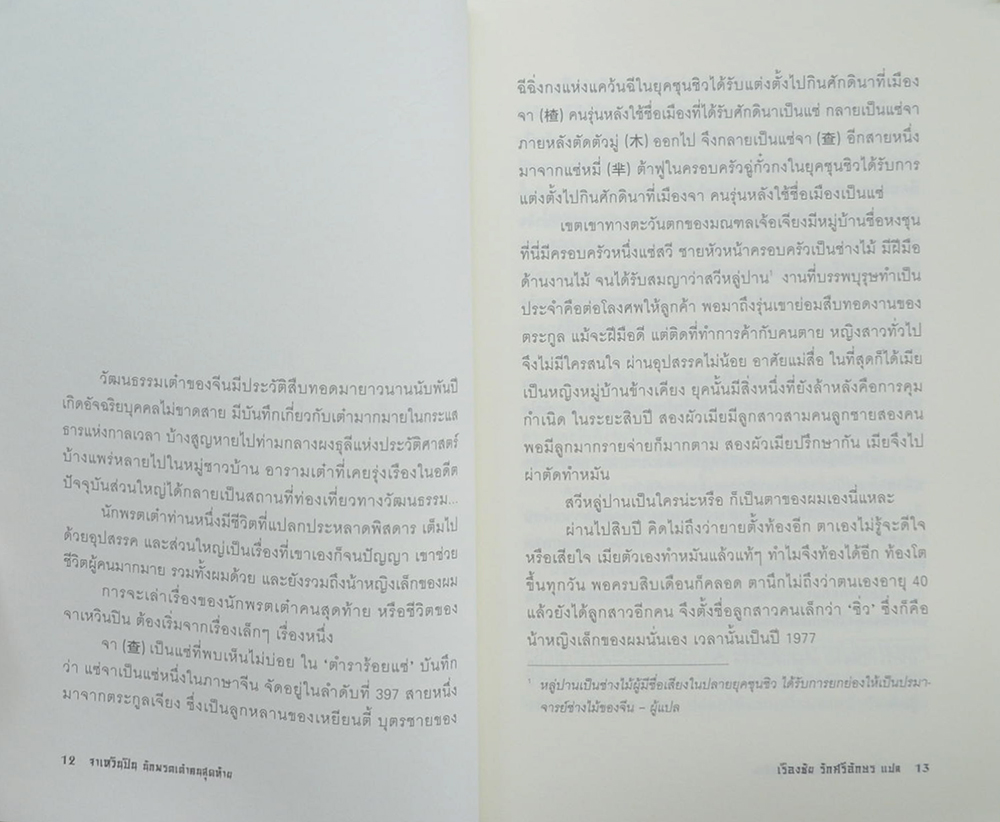 วัฒนธรรมเต๋าของจีนมีประวัติสืบทอดมายาวนานนับพันปี
เกิดอัจฉริยบุคคลไม่ขาดสาย มีบันทึกเกี่ยวกับเต๋ามากมายในกระแส
ธารแห่งกาลเวลา บ้างสูญหายไปท่ามกลางผงธุลีแห่งประวัติศาสตร์
บ้างแพร่หลายไปในหมู่ชาวบ้าน อารามเต๋าที่เคยรุ่งเรืองในอดีต
ปัจจุบันส่วนใหญ่ได้กลายเป็นสถานที่ท่องเที่ยวทางวัฒนธรรม...
นักพรตเต๋าท่านหนึ่งมีชีวิตที่แปลกประหลาดพิสดาร เต็มไป
ด้วยอุปสรรค และส่วนใหญ่เป็นเรื่องที่เขาเองก็จนปัญญา เขาช่วย
ชีวิตผู้คนมากมาย รวมทั้งผมด้วย และยังรวมถึงน้าหญิงเล็กของผม
การจะเล่าเรื่องของนักพรตเต๋าคนสุดท้าย หรือชีวิตของ
จาเหวินปิน ต้องเริ่มจากเรื่องเล็กๆ เรื่องหนึ่ง
จา (查) เป็นแซ่ที่พบเห็นไม่บ่อย ใน ‘ตำราร้อยแซ่’ บันทึก
ว่า แซ่จาเป็นแซ่หนึ่งในภาษาจีน จัดอยู่ในลำดับที่ 397 สายหนึ่ง
มาจากตระกูลเจียง ซึ่งเป็นลูกหลานของเหยียนตี้ บุตรชายของ
12 จาเหวินปิน นักพรตเต๋าคนสุดท้าย
ฉีฉิ่งกงแห่งแคว้นฉีในยุคชุนชิวได้รับแต่งตั้งไปกินศักดินาที่เมือง
จา (楂) คนรุ่นหลังใช้ชื่อเมืองที่ได้รับศักดินาเป็นแซ่ กลายเป็นแซ่จา
ภายหลังตัดตัวมู่ (木) ออกไป จึงกลายเป็นแซ่จา (查) อีกสายหนึ่ง
มาจากแซ่หมี่ (芈) ต้าฟูในครอบครัวฉู่กั๋วกงในยุคชุนชิวได้รับการ
แต่งตั้งไปกินศักดินาที่เมืองจา คนรุ่นหลังใช้ชื่อเมืองเป็นแซ่
เขตเขาทางตะวันตกของมณฑลเจ้อเจียงมีหมู่บ้านชื่อหงชุน
ที่นี่มีครอบครัวหนึ่งแซ่สวี ชายหัวหน้าครอบครัวเป็นช่างไม้ มีฝีมือ
ด้านงานไม้ จนได้รับสมญาว่าสวีหลู่ปาน¹ งานที่บรรพบุรุษทำเป็น
ประจำคือต่อโลงศพให้ลูกค้า พอมาถึงรุ่นเขาย่อมสืบทอดงานของ
ตระกูล แม้จะฝีมือดี แต่ติดที่ทำการค้ากับคนตาย หญิงสาวทั่วไป
จึงไม่มีใครสนใจ ผ่านอุปสรรคไม่น้อย อาศัยแม่สื่อ ในที่สุดก็ได้เมีย
เป็นหญิงหมู่บ้านข้างเคียง ยุคนั้นมีสิ่งหนึ่งที่ยังล้าหลังคือการคุม
กำเนิด ในระยะสิบปี สองผัวเมียมีลูกสาวสามคนลูกชายสองคน
พอมีลูกมากรายจ่ายก็มากตาม สองผัวเมียปรึกษากัน เมียจึงไป
ผ่าตัดทำหมัน
สวีหลู่ปานเป็นใครน่ะหรือ ก็เป็นตาของผมเองนี่แหละ
ผ่านไปสิบปี คิดไม่ถึงว่ายายตั้งท้องอีก ตาเองไม่รู้จะดีใจ
หรือเสียใจ เมียตัวเองทำหมันแล้วแท้ๆ ทำไมจึงท้องได้อีก ท้องโต
ขึ้นทุกวัน พอครบสิบเดือนก็คลอด ตานึกไม่ถึงว่าตนเองอายุ 40
แล้วยังได้ลูกสาวอีกคน จึงตั้งชื่อลูกสาวคนเล็กว่า ‘ซิ่ว’ ซึ่งก็คือ
น้าหญิงเล็กของผมนั่นเอง เวลานั้นเป็นปี 1977
¹ หลู่ปานเป็นช่างไม้ผู้มีชื่อเสียงในปลายยุคชุนชิว ได้รับการยกย่องให้เป็นปรมา-
จารย์ช่างไม้ของจีน – ผู้แปล
เรืองชัย รักศรีอักษร แปล 13